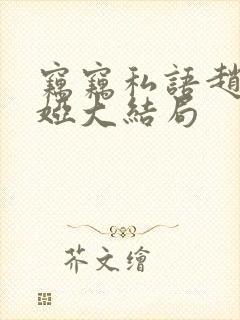 竊竊私語趙
婭大結局
芥文繪